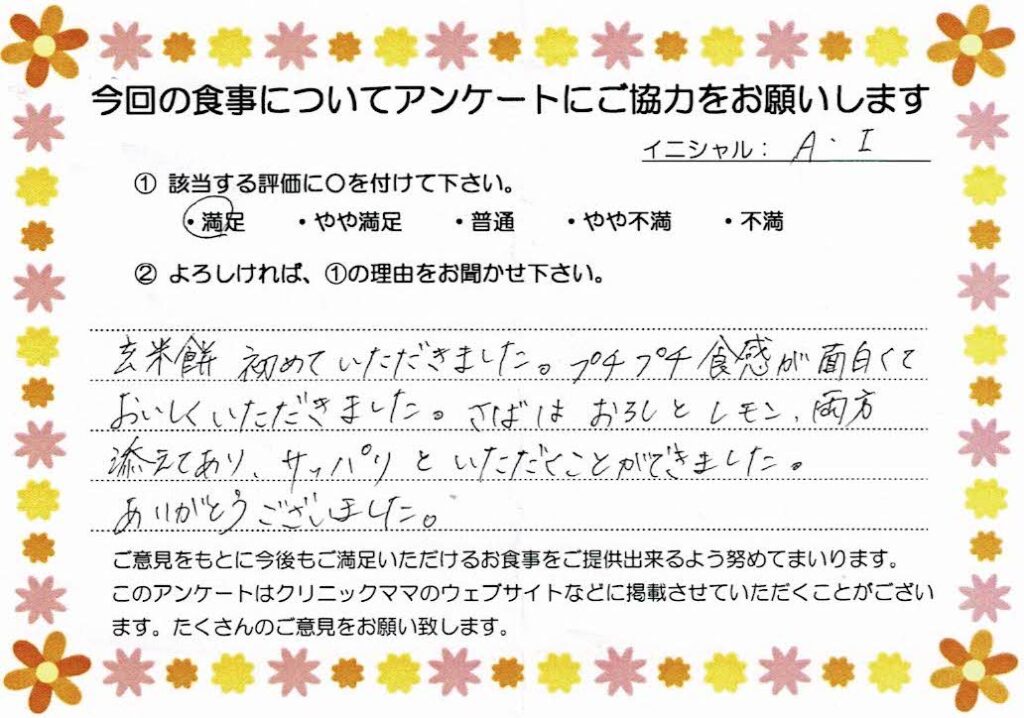 今回の食事についてアンケートにご協力をお願いします
イニシャル： A・I
① 該当する評価に〇を付けて下さい。
・満足 ・やや満足 ・普通 ・やや不満 ・不満
② よろしければ、①の理由をお聞かせ下さい。
玄米餅 初めていただきました。プチプチ食感が面白くて
おいしくいただきました。さばは おろしと レモン、両方
添えてあり、サッパリと いただくことができました。
ありがとうございました。
ご意見をもとに今後もご満足いただけるお食事をご提供出来るよう努めてまいります。
このアンケートはクリニックママのウェブサイトなどに掲載させていただくことがござい
ます。たくさんのご意見をお願い致します。